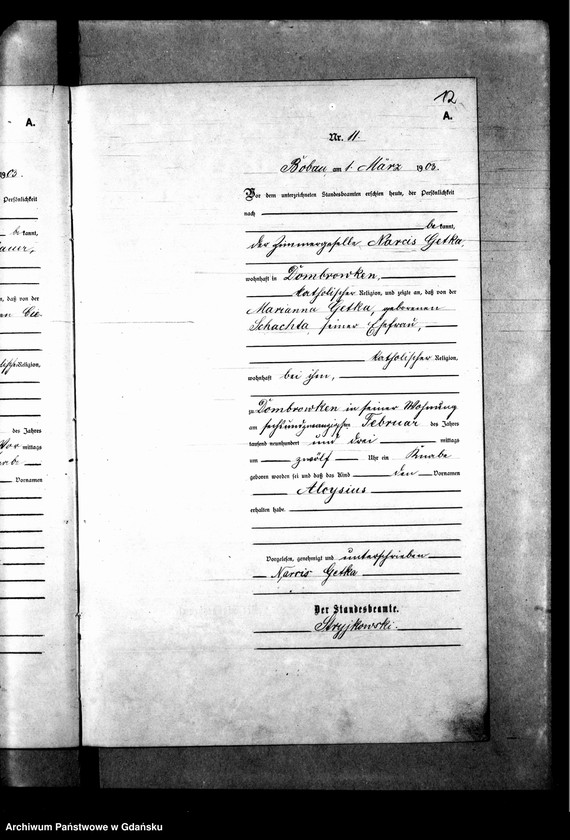 12
A.
A.
Nr. 11.
Bobau, am 1. März 1903.
903.
Vor dem unterzeichneten Standesbeamten erschien heute, der Persönlichkeit
Persönlichkeit
nach
be kannt,
be kannt,
der Zimmergeselle Narcis Getka,
wohnhaft in Dombrowken,
katholischer Religion, und zeigte an, daß von der
n, daß von der
Marianna Getka, geborenen
Schachta, seiner Ehefrau,
katholischer Religion,
Religion,
wohnhaft bei ihm,
zu Dombrowken in seiner Wohnung
am sechsundzwanzigsten Februar des Jahres
des Jahres
tausend neunhundert und drei mittags
Vor mittags
um zwölf Uhr ein Knabe
geboren worden sei und daß das Kind den Vornamen
Vornamen
Aloysius
erhalten habe.
Vorgelesen, genehmigt und unterschrieben
Narcis Getka
Der Standesbeamte.
Stryjkowski.
Archiwum Państwowe w Gdańsku